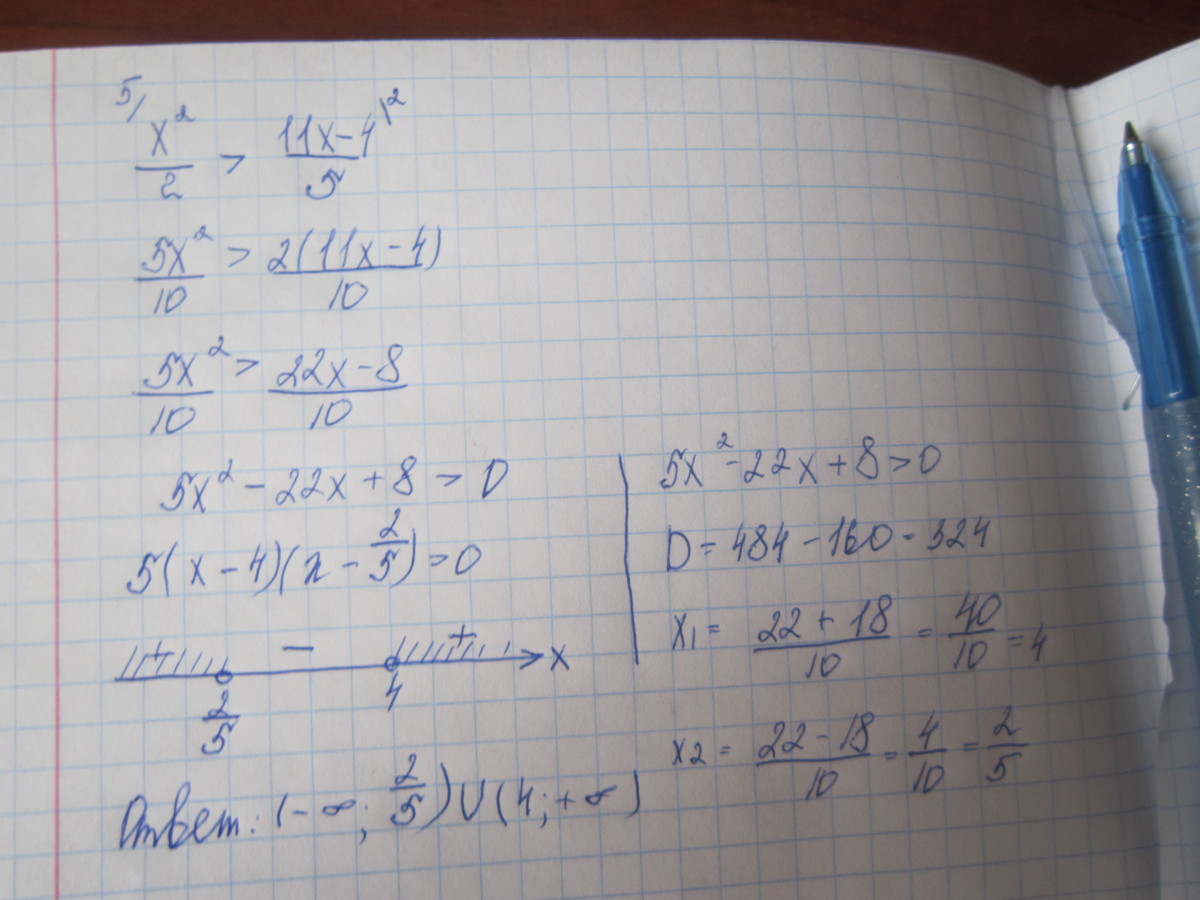 5/ x²/2 > (11x-4)/5 |²
5x²/10 > 2(11x-4)/10
5x²/10 > 22x-8/10
5x² - 22x + 8 > 0
5(x-4)(x - 2/5) > 0
+ − + x
2/5 4
Ответ: (-∞; 2/5) ∪ (4; +∞)
5x² - 22x + 8 > 0
D = 484 - 160 = 324
x₁ = 22+18/10 = 40/10 = 4
x₂ = 22-18/10 = 4/10 = 2/5